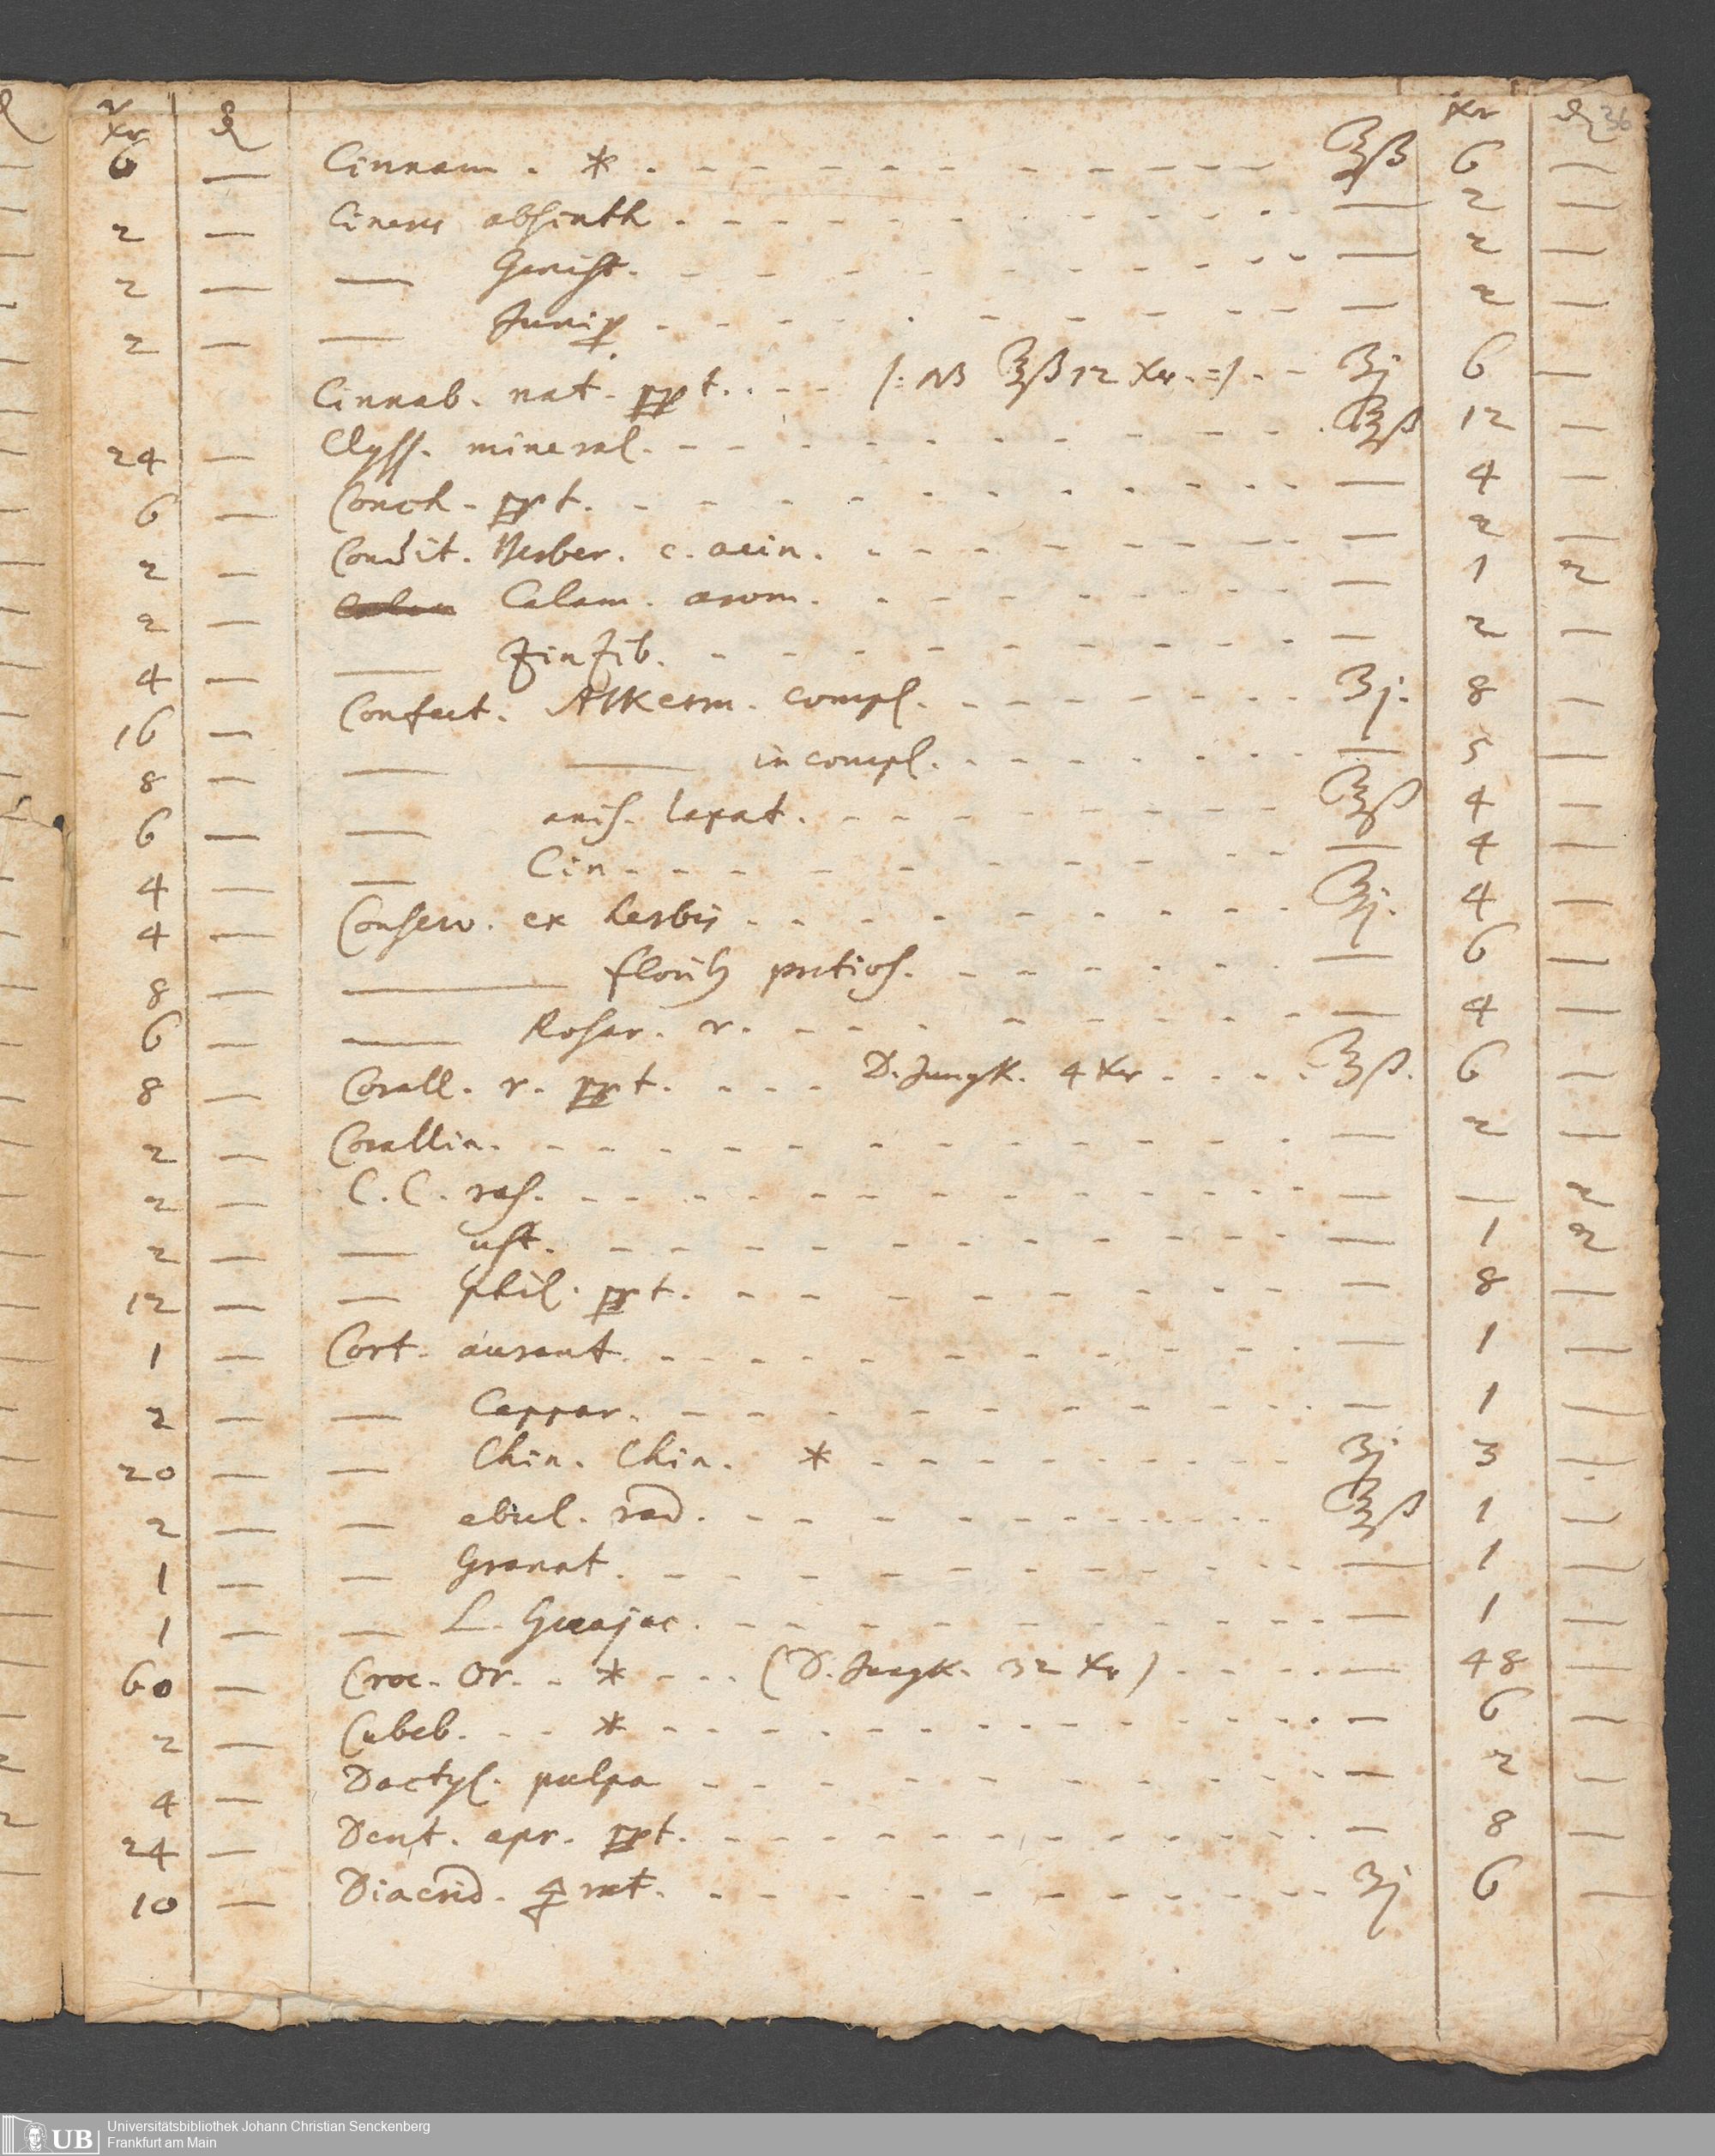 xr ₰ xr ₰ 36
6 — Cinnam. * . ℥ß 6 —
2 — Ciner absinth. — 2 —
2 — — Genist. — 2 —
2 — — Junip. — 2 —
Cinnab. nat. ppt. /: NB ℥ß 12 xr. :/ ʒj 6 —
24 — Clyss. mineral. ℥ß 12 —
6 — Conch. ppt. — 4 —
2 — Condit. Berber. c. acin. — 2 —
2 — Calam. arom. — 1 2
4 — — Zinzib. — 2 —
16 — Confect. Alkerm. compl. ʒj. 8 —
8 — — — incompl. — 5 —
6 — — anis. laxat. ℥ß 4 —
4 — — Cin. — 4 —
4 — Conserv. ex herbis ℥j. 4 —
8 — — pretios. — 6 —
6 — — Rosar. r. — 4 —
8 — Corall. r. ppt. D. Jungk. 4 xr ʒß. 6 —
2 — Corallin. — 2 —
2 — C. C. ras. — — 2
2 — — ust. — 1 2
12 — — phil. ppt. — 8 —
1 — Cort. aurant. — 1 —
2 — — Cappar. — 1 —
20 — — Chin. Chin. * ʒj 3 —
2 — — ebul. rad. ℥ß 1 —
1 — — Granat. — 1 —
1 — — L. Guajac. — 1 —
60 — Croc. Or. * (D. Jungk. 32 xr) — 48 —
2 — Cubeb. * — 6 —
4 — Dactyl. pulpa — 2 —
24 — Dent. apr. ppt. — 8 —
10 — Diacrid. ʒj 6 —
UB Universitätsbibliothek Johann Christian Senckenberg
Frankfurt am Main